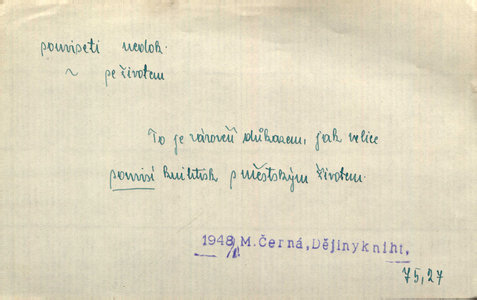 souviseti nedok.
~ se životem
To je zároveň důkazem, jak velice
souvisí knihtisk s městským životem.
1948 M.Černá,Dějinykniht,
75,27